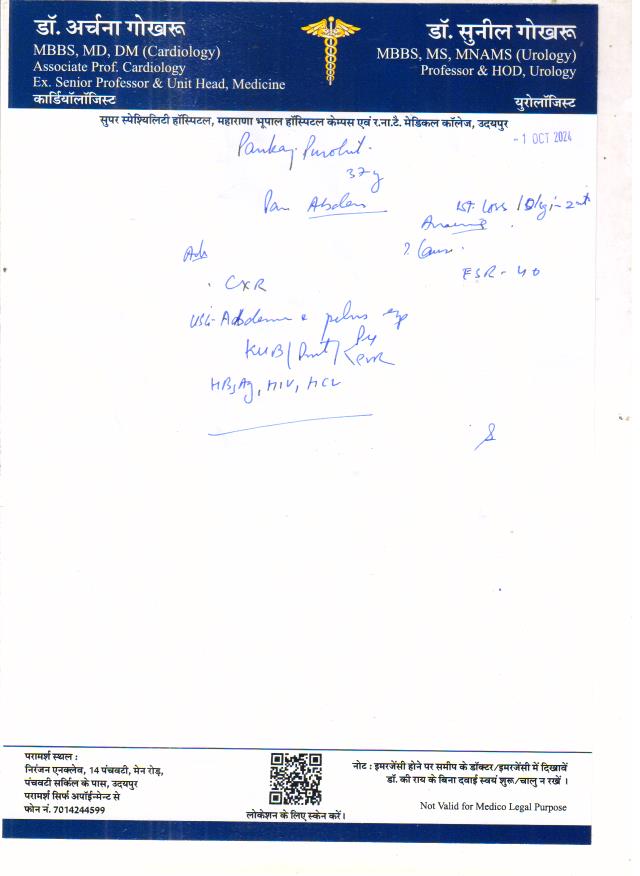 डॉ. अर्चना गोखरू
MBBS, MD, DM (Cardiology)
Associate Prof. Cardiology
Ex. Senior Professor & Unit Head, Medicine
कार्डियॉलॉजिस्ट
डॉ. सुनील गोखरू
MBBS, MS, MNAMS (Urology)
Professor & HOD, Urology
युरोलॉजिस्ट
सुपर स्पेश्यिलिटी हॉस्पिटल, महाराणा भूपाल हॉस्पिटल केम्पस एवं र.ना.टै. मेडिकल कॉलेज, उदयपुर
-1 OCT 2024
Pankaj Purohit.
37 y
Pain Abdomen
Wt. Loss
Adv
CXR
ESR - 40
USG - Abdomen & pelvis
KUB/Prost/
PVR
HBsAg, HIV, HCV
परामर्श स्थल :
निरंजन एनक्लेव, 14 पंचवटी, मेन रोड़,
पंचवटी सर्किल के पास, उदयपुर
परामर्श सिर्फ अपॉईन्मेन्ट से
फोन नं. 7014244599
लोकेशन के लिए स्केन करें।
नोट : इमरजेंसी होने पर समीप के डॉक्टर/इमरजेंसी में दिखावें
डॉ. की राय के बिना दवाई स्वयं शुरू/चालु न रखें ।
Not Valid for Medico Legal Purpose